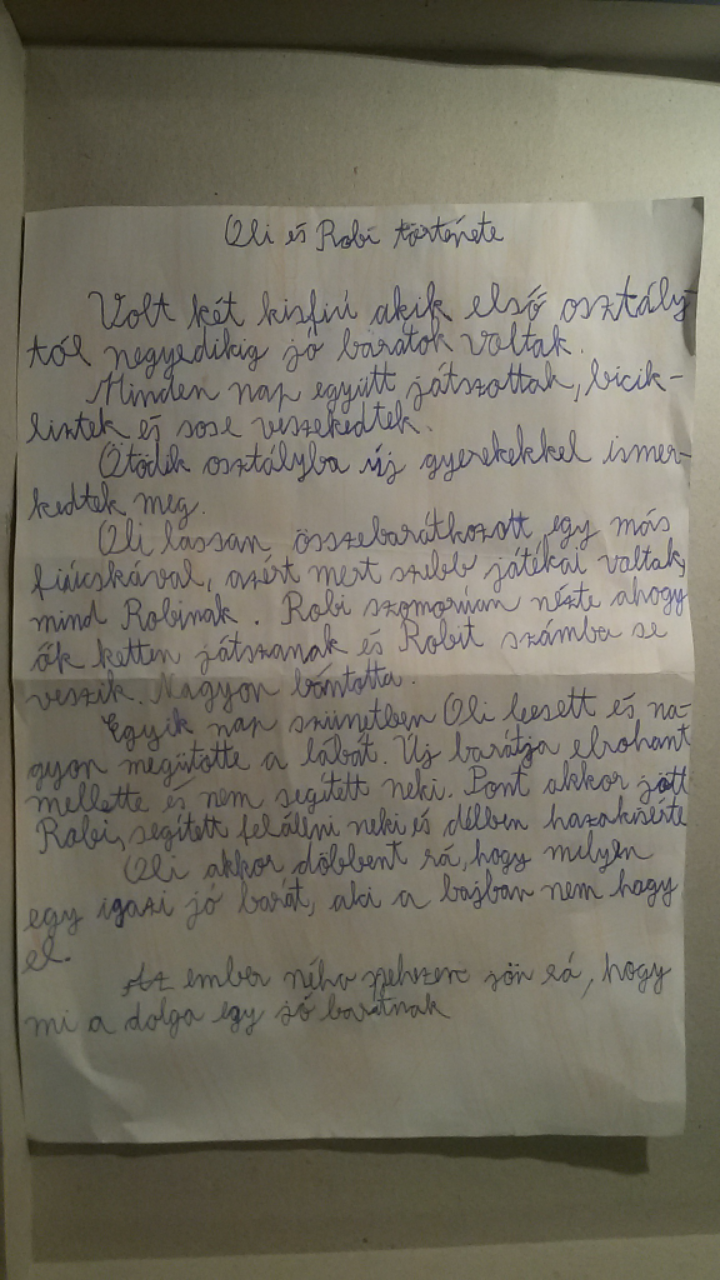 Oli és Robi története
Volt két kisfiú akik első osztály-
tól negyedikig jó barátok voltak.
Minden nap együtt játszottak, bicik-
liztek és sose veszekedtek.
Ötödik osztályba új gyerekekkel ismer-
kedtek meg.
Oli lassan összebarátkozott egy más
fiúcskával, azért mert szebb játékai voltak,
mind Robinak. Robi szomorúan nézte ahogy
ők ketten játszanak és Robit számba se
veszik. Nagyon bántotta.
Egyik nap szünetben Oli leesett és na-
gyon megütötte a lábát. Új barátja elrohant
mellette és nem segített neki. Pont akkor jött
Robi, segített felállni neki és délben hazakisérte
Oli akkor döbbent rá, hogy milyen
egy igazi jó barát, aki a bajban nem hagy
el.
Az ember néha nehezen jön rá, hogy
mi a dolga egy jó barátnak